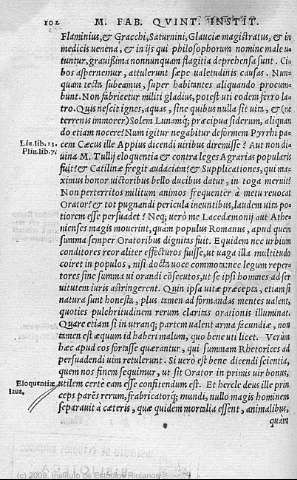 102 M. FAB. QVINT. INSTIT.
Flaminius, & Gracchi, Saturnini, Glauciæ magistratus, & in
medicis venena, & in ijs qui philosophorum nomine male u
tuntur, gravissima nonnunquam flagitia deprehensa sunt. Ci
bos aspernemur, attulerunt sæpe ualetudinis causas. Nun
quam tecta subeamus, super habitantes aliquando procum-
bunt. Non fabricetur militi gladius, potest uti eodem ferro la
tro. Quis nescit ignes, aquas, sine quibus nulla sit uita, & (ne
terrenis immorer) Solem Lunamq; præcipua siderum, aliquan
do etiam nocere? Num igitur negabitur deformem Pyrrhi pa-
Liu. lib. 13. cem Cæcus ille Appius dicendi uiribus diremisse? Aut non di
Plin. lib. 7. uina M. Tullij eloquentia & contra leges Agrarias popularis
fuit? & Catilinæ fregit audaciam? & Supplicationes, qui ma
ximus honor uictoribus bello ducibus datur, in toga meruit?
Non perterritos militum animos frequenter à metu reuocat
Orator? & tot pugnandi pericula ineuntibus, laudem uita po-
tiorem esse persuadet? Neq; uerò me Lacedæmonij aut Athe-
nienses magis mouerint, quam populus Romanus, apud quem
summa semper Oratoribus dignitas fuit. Equidem nec urbium
conditores reor aliter effecturos fuisse, ut uaga illa multitudo
coiret in populos, nisi docta uoce commota: nec legum reper-
tores sine summa ui orandi consecutos, ut se ipsi homines ad ser
uitutem iuris astringerent. Quin ipsa uitæ præcepta, etiam si
natura sunt honesta, plus tamen ad formandas mentes ualent,
quoties pulchritudinem rerum claritas orationis illuminat.
Quare etiam si in utranq; partem ualent arma facundiæ, non
tamen est æquum id haberi malum, quo bene uti licet. Verùm
hæc apud eos fortasse quærantur, qui summam Rhetorices ad
persuadendi uim retulerunt. Si uero est bene dicendi scientia,
quem nos finem sequimur, ut sit Orator in primis uir bonus,
Eloquentiæ utilem certe eam esse confitendum est. Et hercle deus ille prin
laus, ceps parens rerum, fabricatorq; mundi, nullo magis hominem
separauit à cæteris, quæ quidem mortalia essent, animalibus,
quam